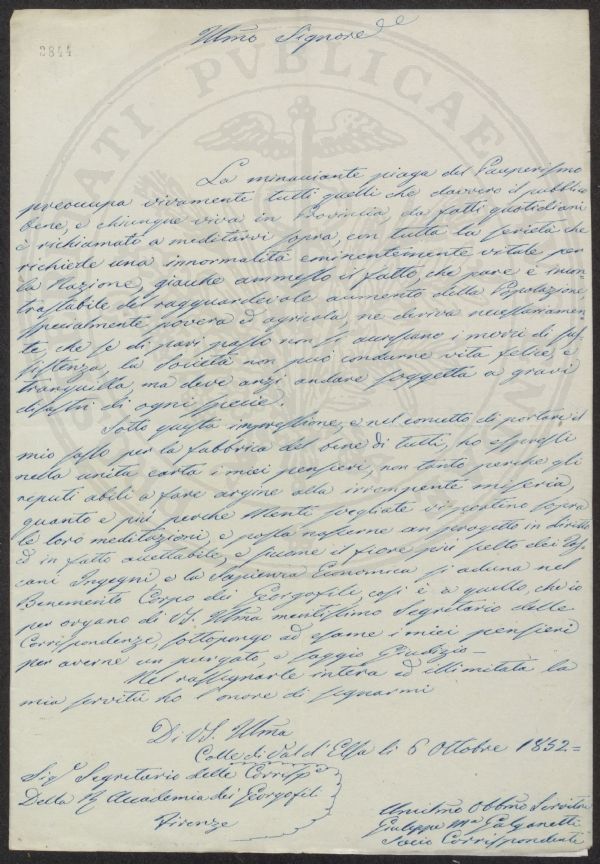 2844
Illmo Signore
La minacciante piaga del Pauperismo
preoccupa vivamente tutti quelli che davvero il pubblico
bene, e chiunque viva in Provincia, da fatti quotidiani
è richiamato a meditarvi sopra, con tutta la serietà che
richiede una innormalità eminentemente vitale per
la Nazione, giacche ammesso il fatto, che pare è incon-
trastabile del ragguardevole aumento della Popolazione,
specialmente povera ed agricola, ne deriva necessariamen-
te, che se di pari passo non si aumentano i mezzi di sus-
sistenza, la Società non può condurne vita felice, e
tranquilla, ma deve anzi andare soggetta a gravi
disastri di ogni specie.
Sotto questa impressione, e nel concetto di portare il
mio sasso per la fabbrica del bene di tutti, ho espressi
nella unita carta i miei pensieri, non tanto perche gli
reputi abili a fare argine alla irrompente miseria,
quanto e più perche Menti svegliate vi portino sopra
le loro meditazioni, e possa nascerne un progetto in diritto
ed in fatto accettabile, e siccome il fiore più scelto dei Tos-
cani Ingegni e la Sapienza Economica si aduna nel
Benemerito Corpo dei Georgofili, così è a quello, che io
per organo di VS. Illma meritissimo Segretario delle
Corrispondenze, sottopongo ad esame i miei pensieri
per averne un purgato, e saggio Giudizio –
Nel rassegnarle intera ed illimitata la
mia servitù ho l'onore di segnarmi
Di VS. Illma
Colle di Val d'Elsa li 6 Ottobre 1852 =
Sigr Segretario delle Corrispe
Della R Accademia dei Georgofili
Firenze
Umilmo Obbmo Servitore
Giuseppe Ma Galganetti
Socio Corrispondente